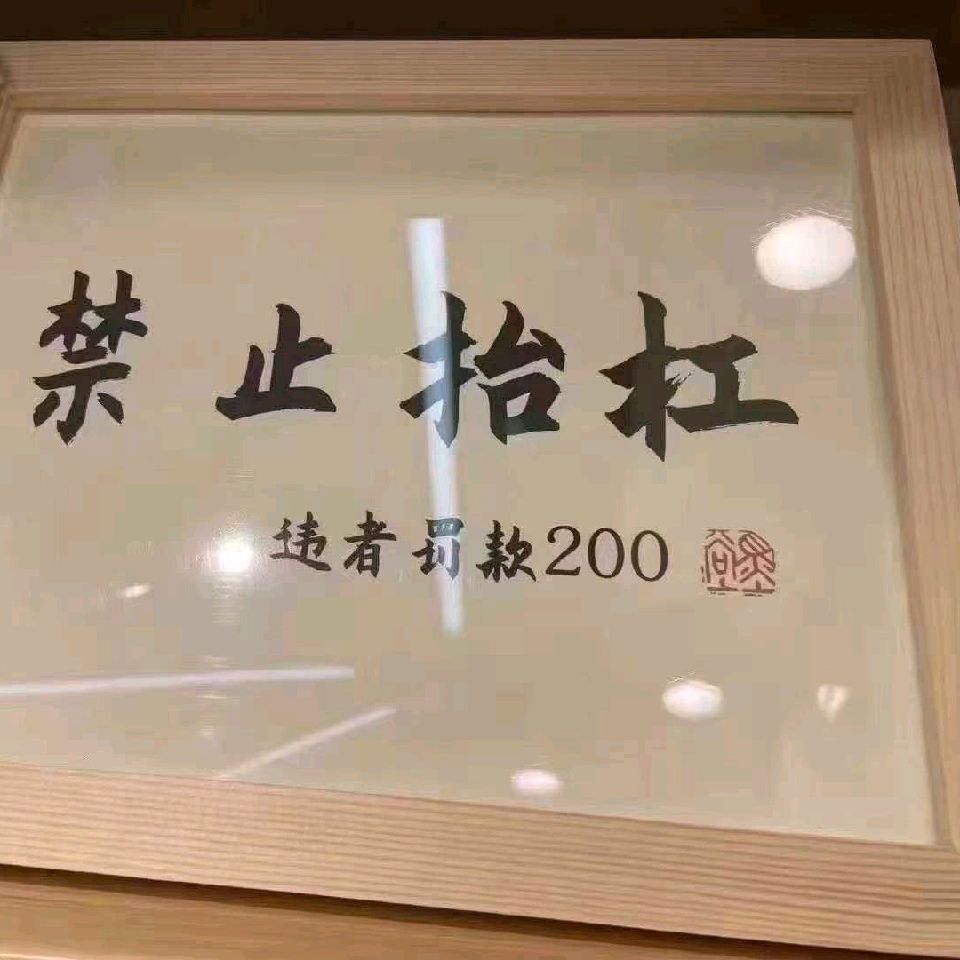 禁止抬杠
违者罚款200